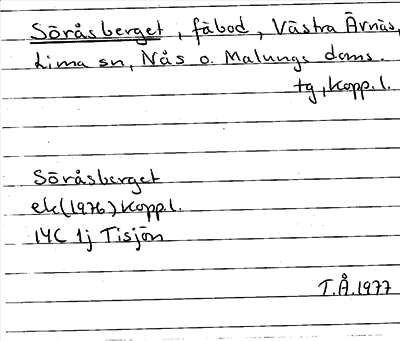 Söråsberget, fäbod, Västra Ärnäs,
Lima sn, Nås o. Malungs doms.
tg, Kopp. l.
Söråsberget
ek(1976) Kopp.l.
14C 1j Tisjön
T.Å.1977